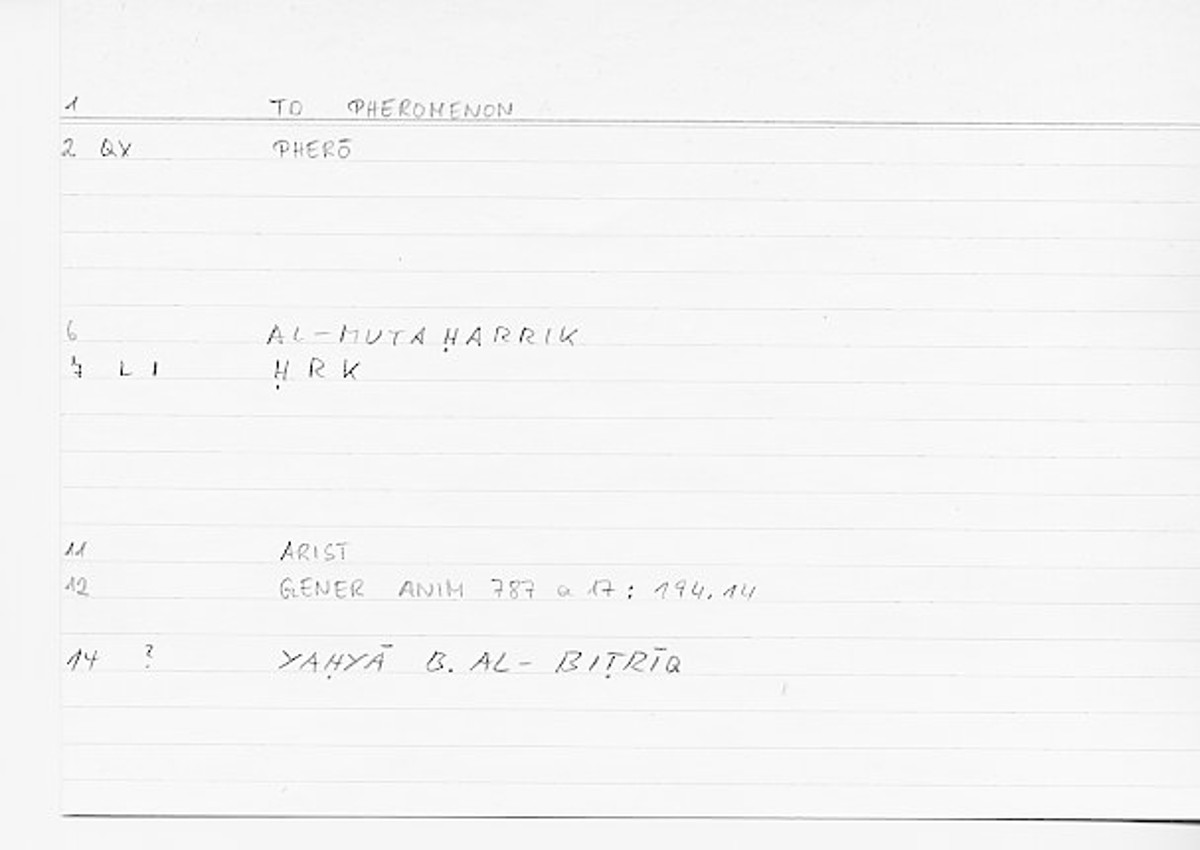 1 TO PHEROMENON
2 QX PHERŌ
6 AL-MUTAḤARRIK
7 LI ḤRK
11 ARIST
12 GENER ANIM 787 a 17: 194.14
14 ? YAḤYĀ B. AL-BIṬRĪQ